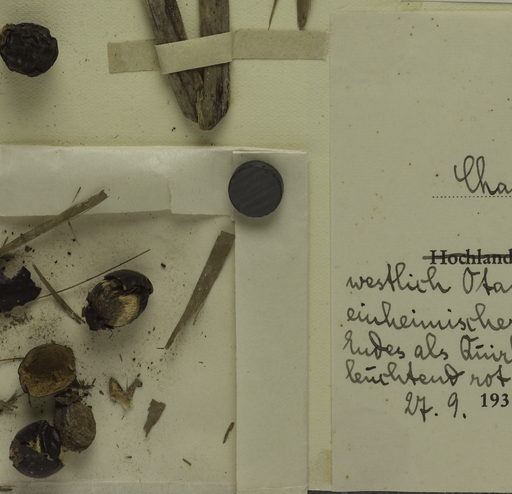 Cha
Hochland
westlich Ota
einheimischer
Endes als Quirl
leuchtend rot
27. 9. 193